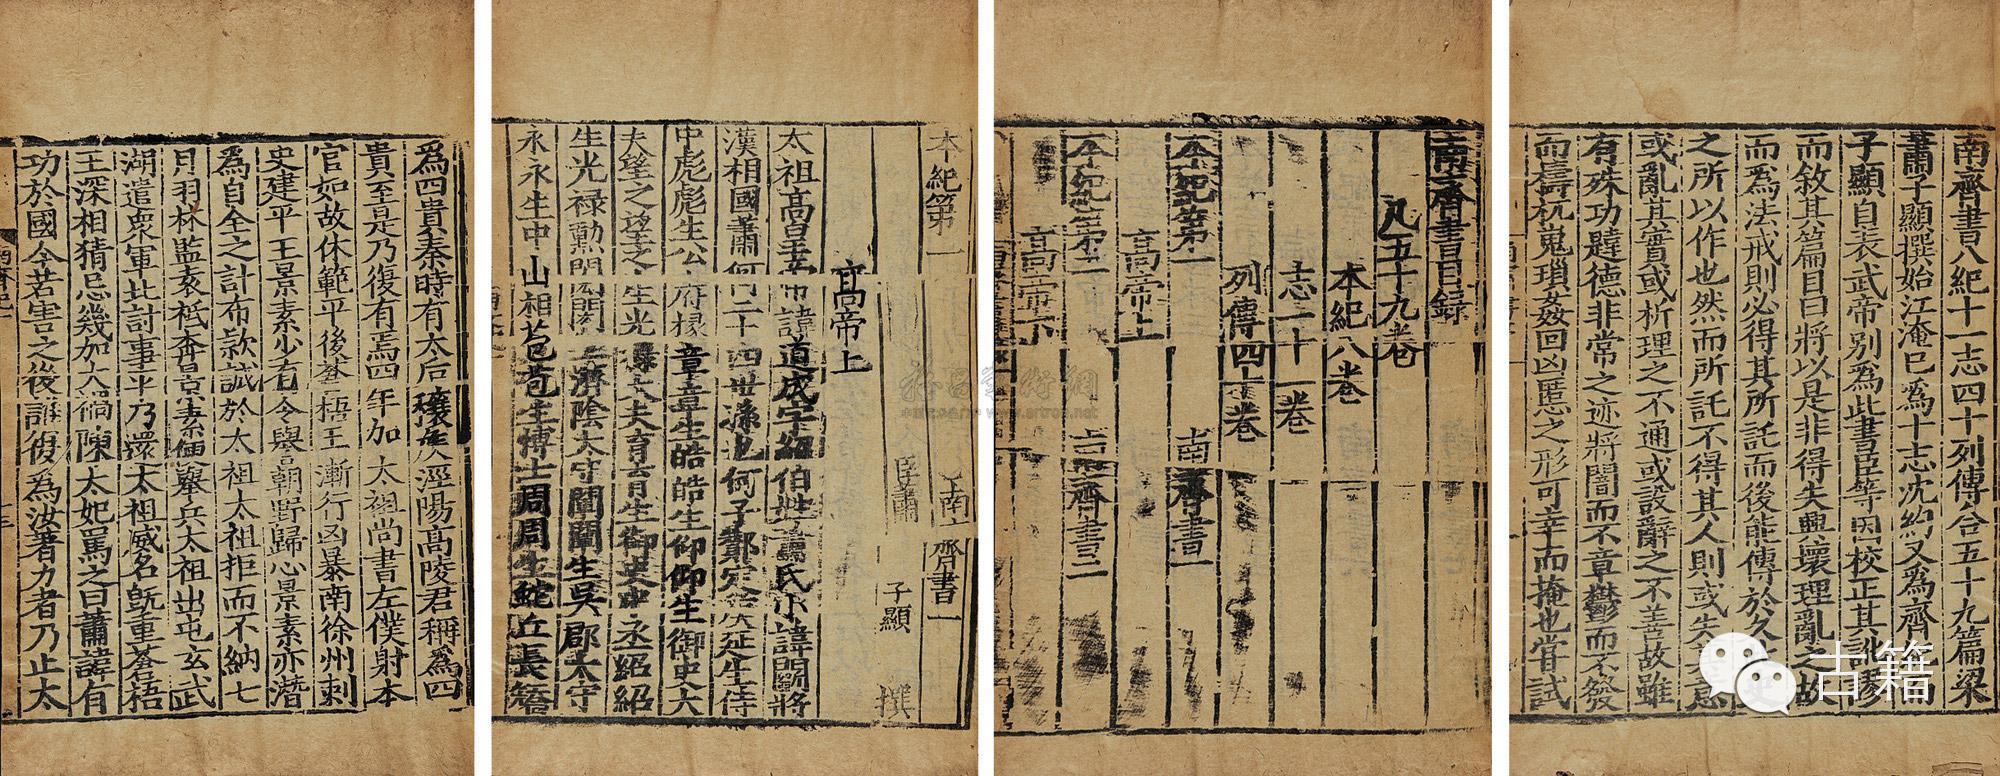 南齊書八紀十一志四十列傳合五十九篇梁
蕭子顯撰始江淹已為十志沈約又為齊紀而
子顯自表武帝別為此書臣等因校正其訛謬
而敘其篇目曰將以是非得失興壞理亂之故
而為法戒則必得其所託而後能傳於久
之所以作也然而所託不得其人則或失其意
或亂其實或析理之不通或設辭之不善故雖
有殊功韙德非常之迹將闇而不章鬱而不發
而檮杌嵬瑣姦回凶慝之形可幸而掩也嘗試
南齊書目録
凡五十九卷
本紀八卷
志一十一卷
列傳四十卷
本紀第一 南齊書一
高帝上
本紀第二 南齊書二
高帝下
本紀第一 南齊書一
臣蕭 子顯 撰
高帝上
太祖高皇帝諱道成字紹伯姓蕭氏小諱鬬將
漢相國蕭何二十四世孫也何子酇定侯延生侍
中彪彪生公府掾章章生皓皓生仰仰生御史大
夫望之望之生光祿大夫育育生御史中丞紹紹
生光禄勳閎閎生濟陰太守闡闡生吳郡太守
永永生中山相苞苞生博士周周生蛇丘長蟜
為四貴秦時有太后穰侯涇陽高陵君稱為四
貴至是乃復有焉四年加太祖尚書左僕射本
官如故休範平後蒼梧王漸行凶暴南徐州刺
史建平王景素少有令譽朝野歸心景素亦潛
為自全之計布款誠於太祖太祖拒而不納七
月羽林監袁祗奔景素便舉兵太祖出屯玄武
湖遣衆軍北討事平乃還太祖威名既重蒼梧
王深相猜忌幾加大禍陳太妃罵之曰蕭諱有
功於國今若害之後誰復為汝著力者乃止太
雅昌藝術網
www.artron.net
古籍